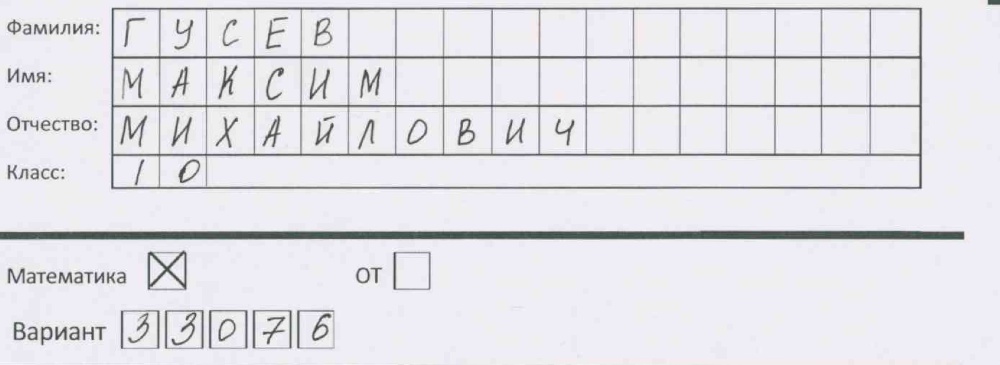 Фамилия: ГУСЕВ
Имя: МАКСИМ
Отчество: МИХАЙЛОВИЧ
Класс: 10
Математика ☒ ОТ ☐
Вариант 33076